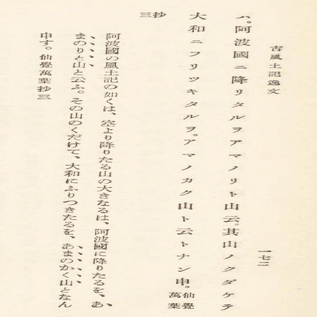 古風土記逸文
一七二
ハ。阿波國ニ降リタルヲアマノリト山云。其山ノクダケテ
大和ニフリツキタルヲ。アマノカク山ト云トナン申。仙覺萬葉
抄三
阿波國の風土記の如くは、空より降りたる山の大きなるは、阿波國に降りたるを、あ
まのりと山と云ふ。その山のくだけて、大和にふりつきたるを、あまのかく山となん
申す。仙覺萬葉抄三